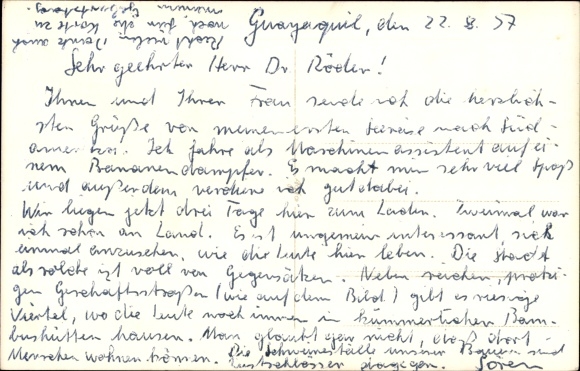 Guayaquil, den 22. 8. 57
Sehr geehrter Herr Dr. Röder!
Ihnen und Ihrer Frau sende ich die herzlich-
sten Grüße von meiner ersten Seereise nach Süd-
amerika. Ich fahre als Maschinenassistent auf ei-
nem Bananendampfer. Es macht mir sehr viel Spaß
und außerdem verdiene ich gut dabei.
Wir liegen jetzt drei Tage hier zum Laden. Zweimal war
ich schon an Land. Es ist ungemein interessant, sich
einmal anzusehen, wie die Leute hier leben. Die Stadt
als solche ist voll von Gegensätzen. Neben reichen, protzi-
gen Geschäftsstraßen (wie auf dem Bild) gibt es riesige
Viertel, wo die Leute noch immer in kümmerlichen Bam-
bushütten hausen. Man glaubt gar nicht, daß dort
Menschen wohnen können. Die Schweineställe unserer Bauern sind
Lustschlösser dagegen. Sören
Recht vielen Dank auch
noch für die Karte zu
meinem Geburtstag.